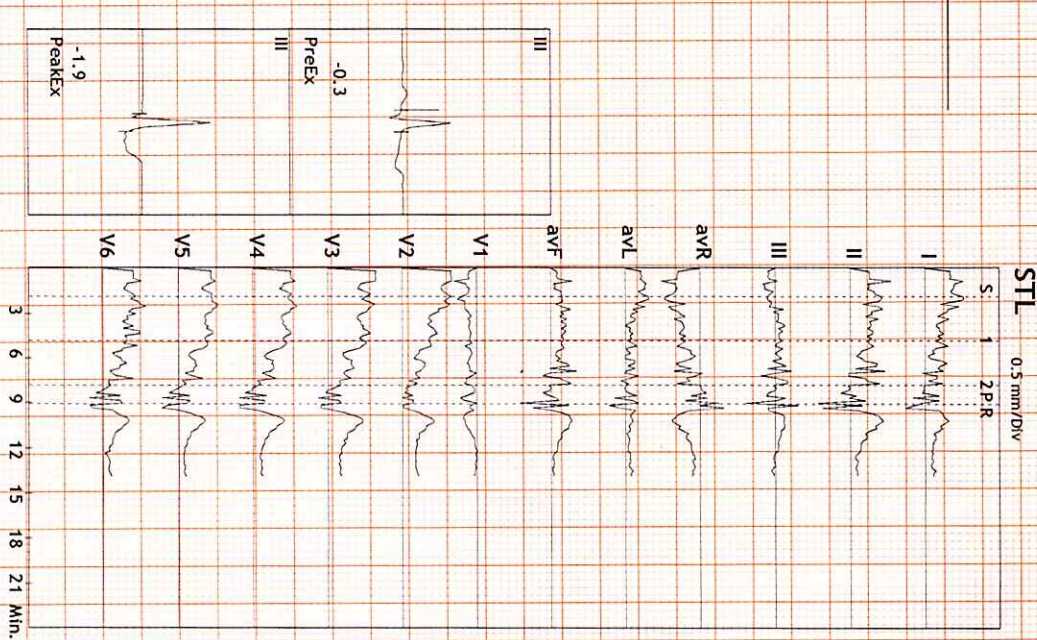 STL 0.5 mm/Div
S 1 2 P R
I
II
III
avR
avL
avF
V1
V2
V3
V4
V5
V6
3 6 9 12 15 18 21 Min.
III
PreEx
-0.3
III
PeakEx
-1.9